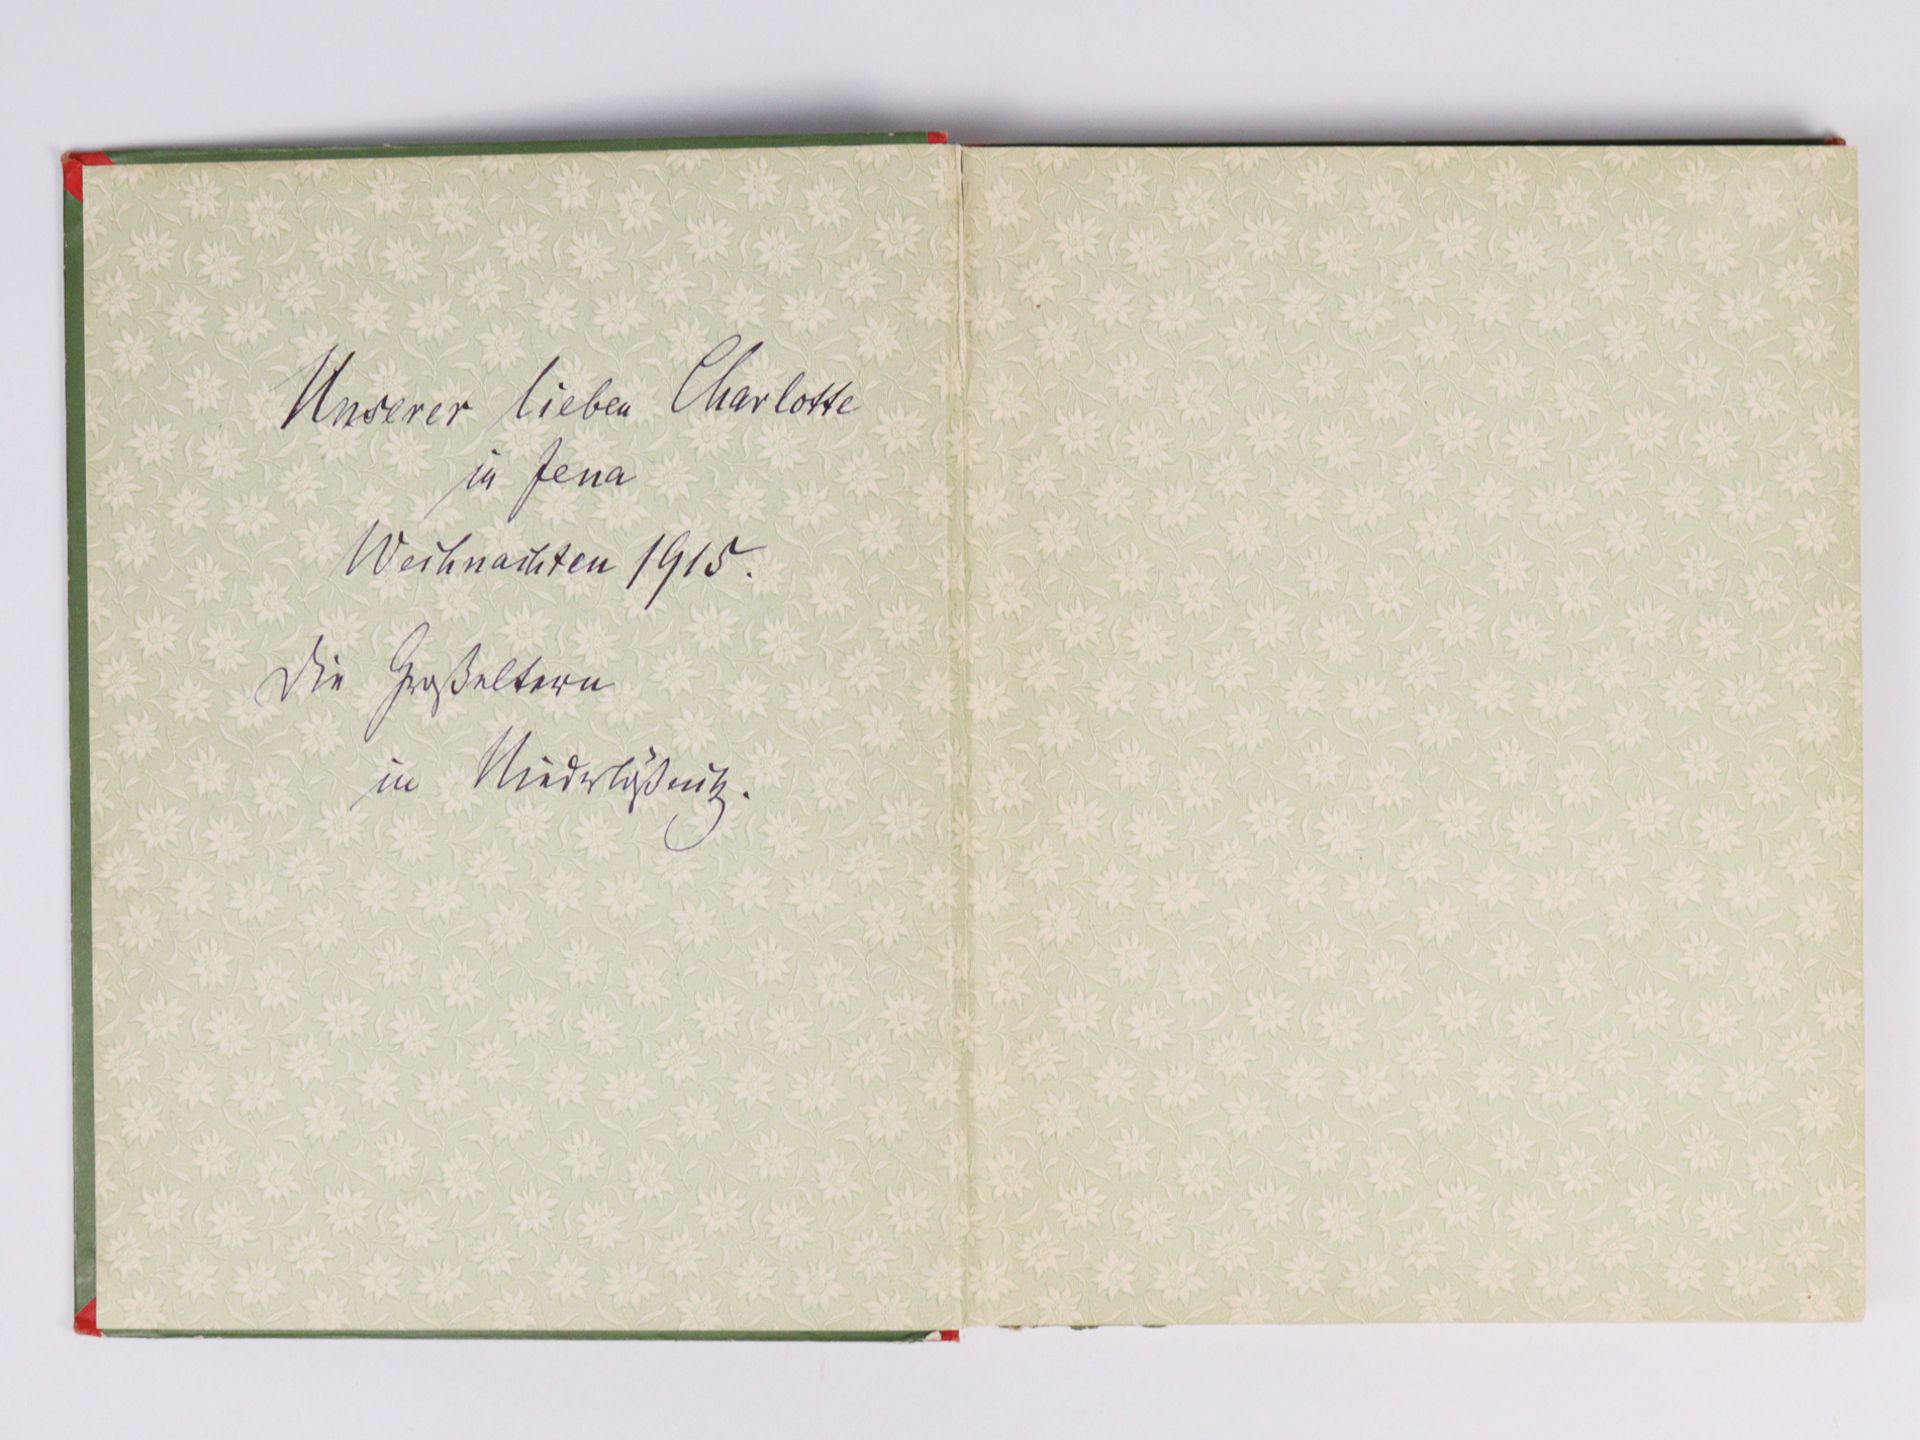 Unserer lieben Charlotte
in Jena
Weihnachten 1915.
Die Großeltern
in Niederlößnitz.